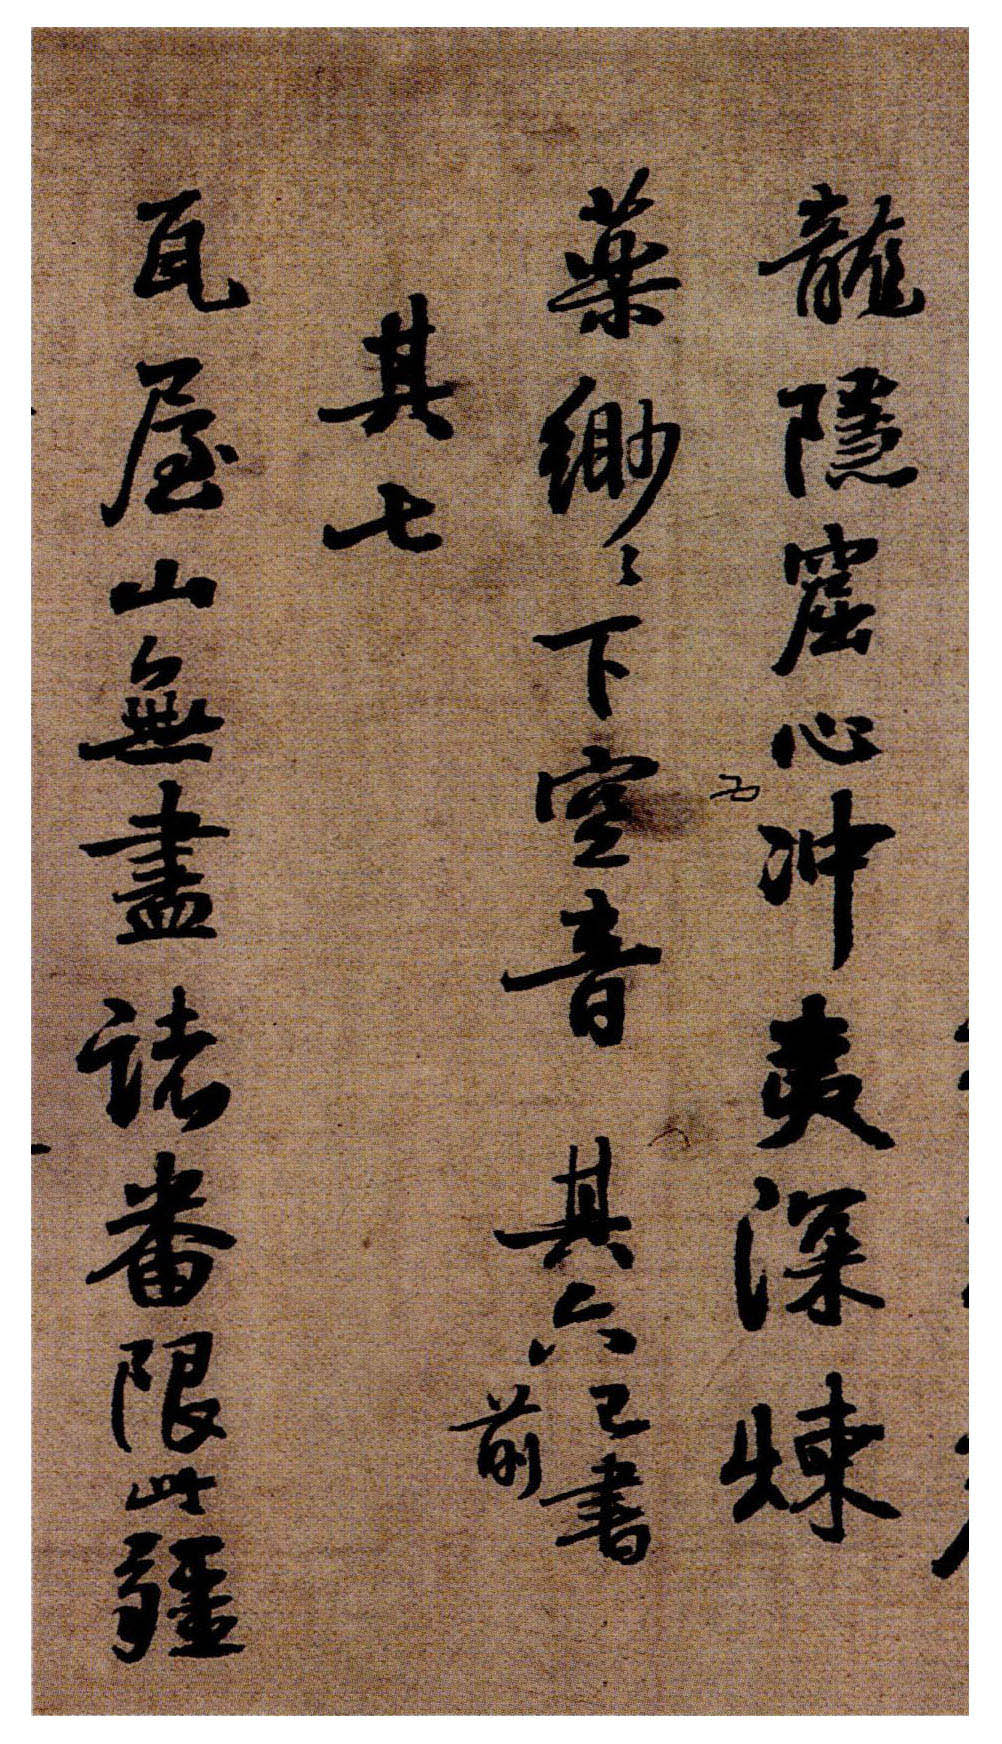 龍隱窟心沖夷深煉
藥緲〻下空音 其六已書
前
其七
瓦屋山無盡諸番限此疆